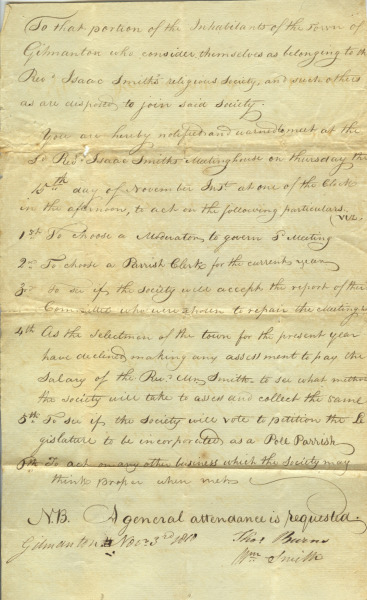 To that portion of the Inhabitants of the Town of
Gilmanton who consider themselves as belonging to the
Revd Isaac Smith's religious Society, and such others
as are disposed to join said Society.
You are hereby notified and warned to meet at the
Sd Revd Isaac Smith's Meetinghouse on thursday the
15th day of November Inst at one of the Clock
in the afternoon, to act on the following particulars,
(viz.
1st To choose a Moderator to govern Sd Meeting
2nd To choose a Parrish Clerk for the current year
3d To see if the Society will accept the report of their
Committee who were chosen to repair the meeting
4th As the Selectmen of the town for the present year
have declined making any assessment to pay the
Salary of the Revd Mr Smith to see what method
the society will take to assess and collect the same
5th To see if the Society will vote to petition the Le
gislature to be incorporated as a Poll Parrish
6th To act on any other business which the Society may
think Proper when met
N.B. A general attendance is requested.
Gilmanton Novr 3rd 1810
Thos Burns
Wm Smith